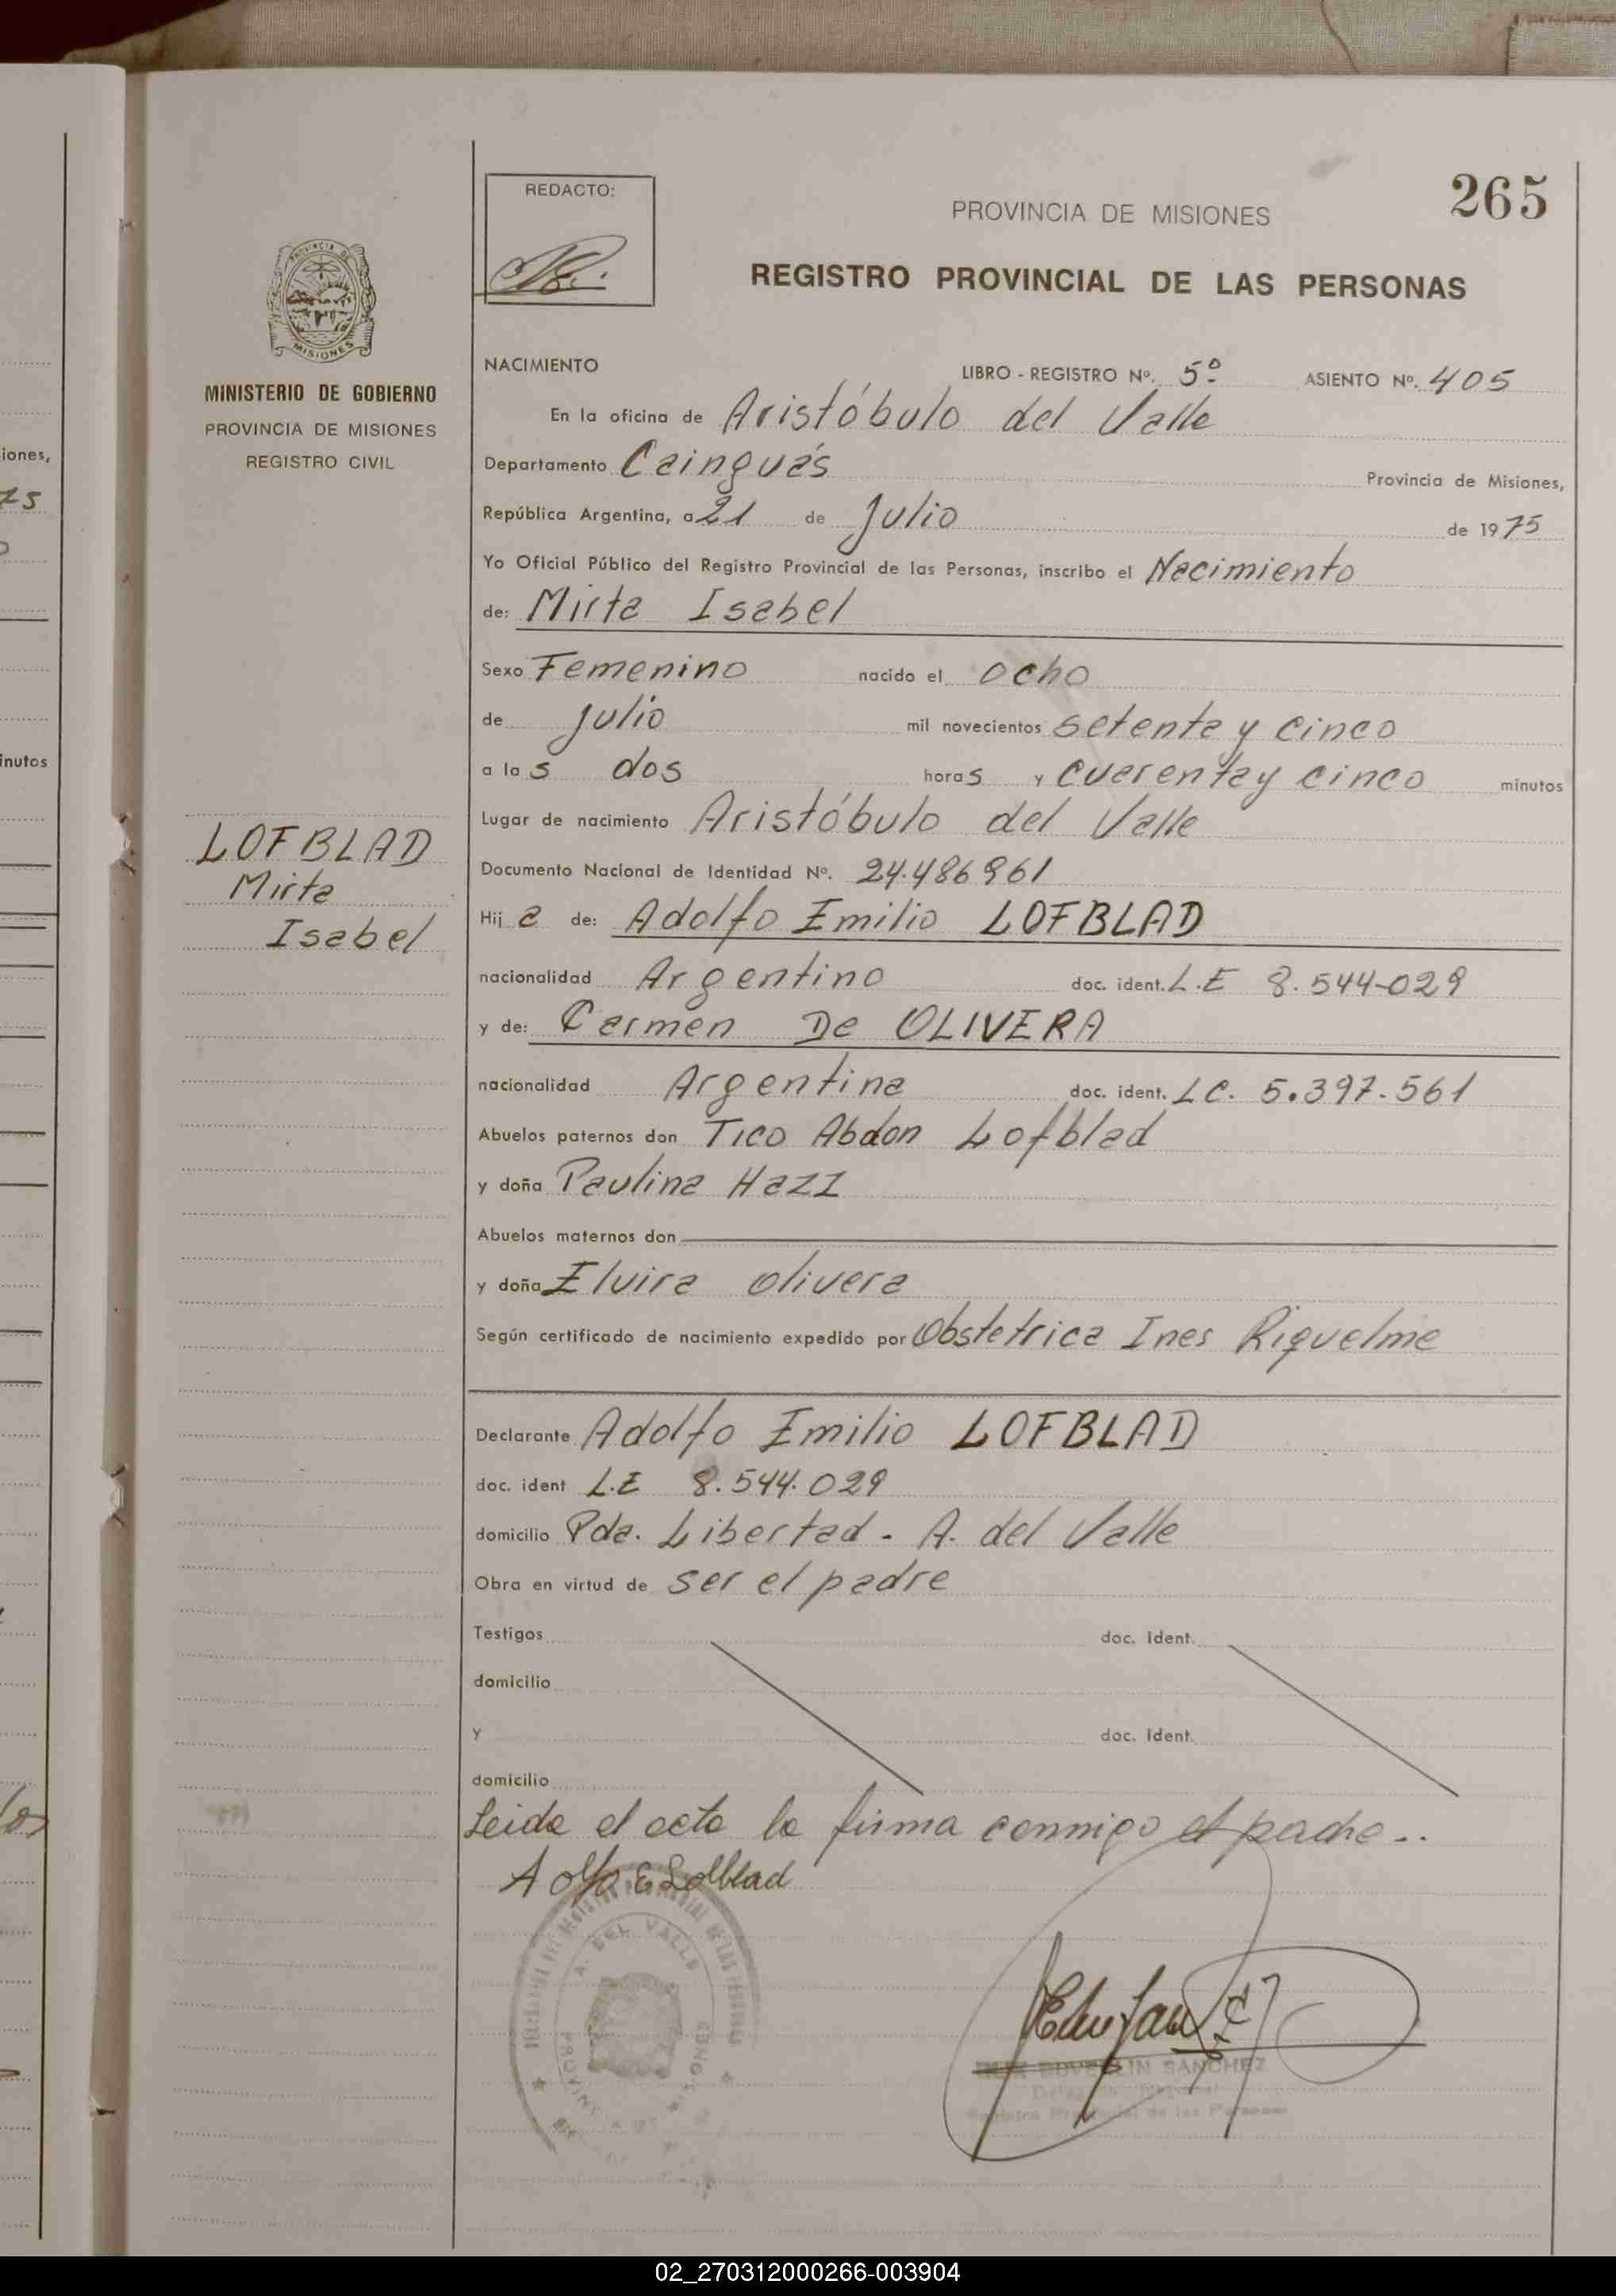 265
REDACTO:
PROVINCIA DE MISIONES
REGISTRO PROVINCIAL DE LAS PERSONAS
PROVINCIA DE
MISIONES
MINISTERIO DE GOBIERNO
PROVINCIA DE MISIONES
REGISTRO CIVIL
iones,
75
inutos
NACIMIENTO LIBRO - REGISTRO Nº. 5º ASIENTO Nº. 405
En la oficina de Aristóbulo del Valle
Departamento Cainguás Provincia de Misiones,
República Argentina, a 21 de Julio de 1975
Yo Oficial Público del Registro Provincial de las Personas, inscribo el Nacimiento
de: Mirta Isabel
Sexo Femenino nacido el ocho
de julio mil novecientos setenta y cinco
a las dos horas y cuarenta y cinco minutos
Lugar de nacimiento Aristóbulo del Valle
LOFBLAD
Mirta
Isabel
Documento Nacional de Identidad Nº. 24.486961
Hij a de: Adolfo Emilio LOFBLAD
nacionalidad Argentino doc. ident. L.E 8.544-029
y de: Carmen De OLIVERA
nacionalidad Argentina doc. ident. LC. 5.397.561
Abuelos paternos don Tico Abdon Lofblad
y doña Paulina Hazi
Abuelos maternos don
y doña Elvira Olivera
Según certificado de nacimiento expedido por Obstetrica Ines Riquelme
Declarante Adolfo Emilio LOFBLAD
doc. ident L.E 8.544.029
domicilio Pda. Libertad - A. del Valle
Obra en virtud de ser el padre
Testigos doc. ident.
domicilio
y doc. ident.
domicilio
Leida el acta la firma conmigo el padre..
A. DEL VALLE
SANCHEZ
02_270312000266-003904